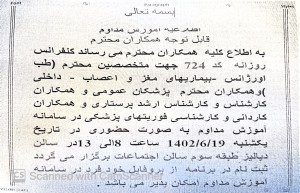 بسمه تعالی
اطلاعیه آموزش مداوم
قابل توجه همکاران محترم
به اطلاع کلیه همکاران محترم می رساند کنفرانس
روزانه کد 724 جهت متخصصین محترم (طب
اورژانس -بیماریهای مغز و اعصاب - داخلی
)و همکاران محترم پزشکان عمومی و همکاران
کارشناس و کارشناس ارشد پرستاری و همکاران
کاردانی و کارشناسی فوریتهای پزشکی در سامانه
آموزش مداوم به صورت حضوری در تاریخ
یکشنبه 1402/6/19 ساعت 8الی 13در سالن
دیالیز طبقه سوم سالن اجتماعات برگزار می گردد
ثبت نام در برنامه از پروفایل خود در سامانه
آموزش مداوم امکان پذیر می باشد .
Scanned with CamScanner